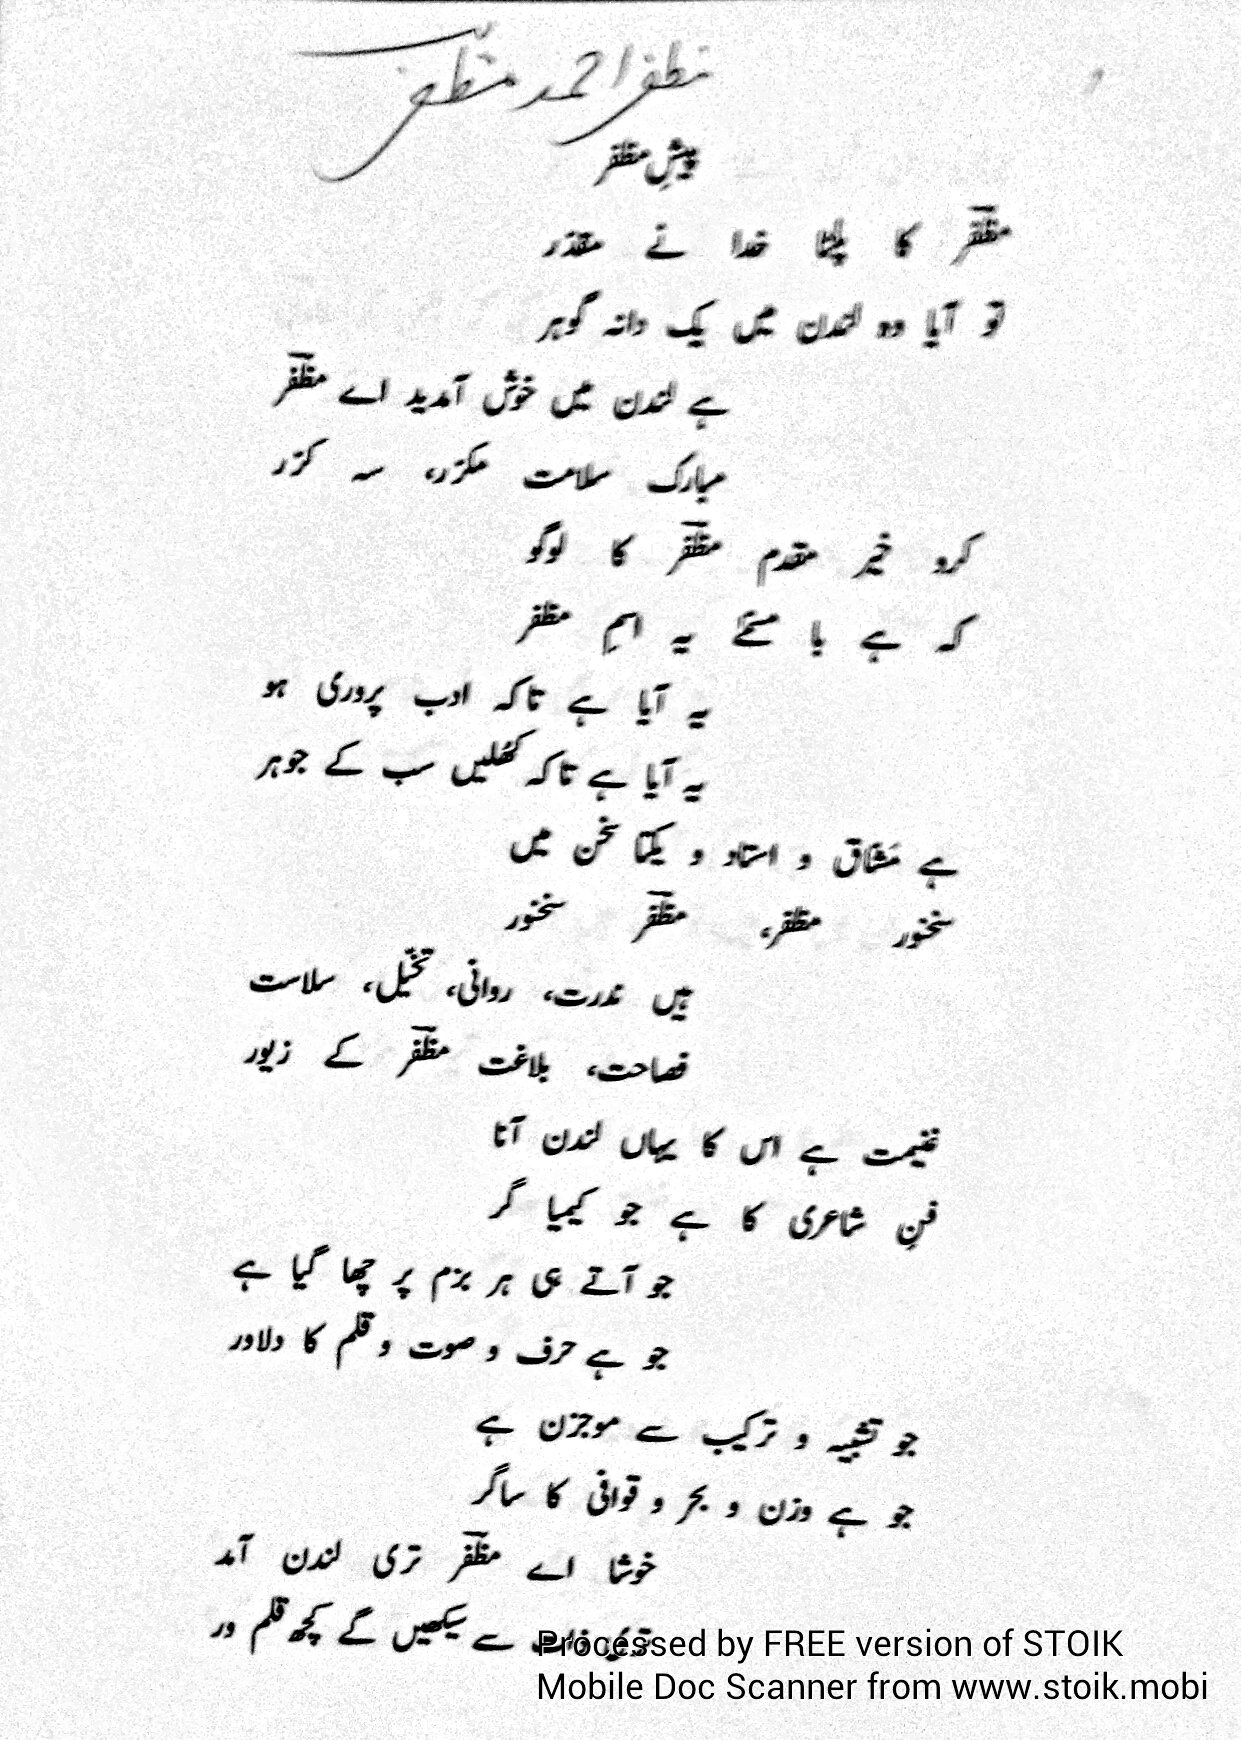 مظفر احمد مظفّر
پیشِ مظفر
مظفّر کا پلٹا خدا نے مقدّر
تو آیا وہ لندن میں یک دانہ گوہر
ہے لندن میں خوش آمدید اے مظفّر
مبارک سلامت مکرّر، سہ کرّر
کرو خیر مقدم مظفّر کا لوگو
کہ ہے با مسمّےٰ یہ اسمِ مظفر
یہ آیا ہے تاکہ ادب پروری ہو
یہ آیا ہے تاکہ کھُلیں سب کے جوہر
ہے مَشّاق و استاد و یکتا سخن میں
سخنور مظفر، مظفّر سخنور
ہیں ندرت، روانی، تخیّل، سلاست
فصاحت، بلاغت مظفّر کے زیور
غنیمت ہے اس کا یہاں لندن آنا
فنِ شاعری کا ہے جو کیمیا گر
جو آتے ہی ہر بزم پر چھا گیا ہے
جو ہے حرف و صوت و قلم کا دلاور
جو تشبیہ و ترکیب سے موجزن ہے
جو ہے وزن و بحر و قوافی کا ساگر
خوشا اے مظفّر تری لندن آمد
سے سیکھیں گے کچھ قلم ور
Processed by FREE version of STOIK
Mobile Doc Scanner from www.stoik.mobi